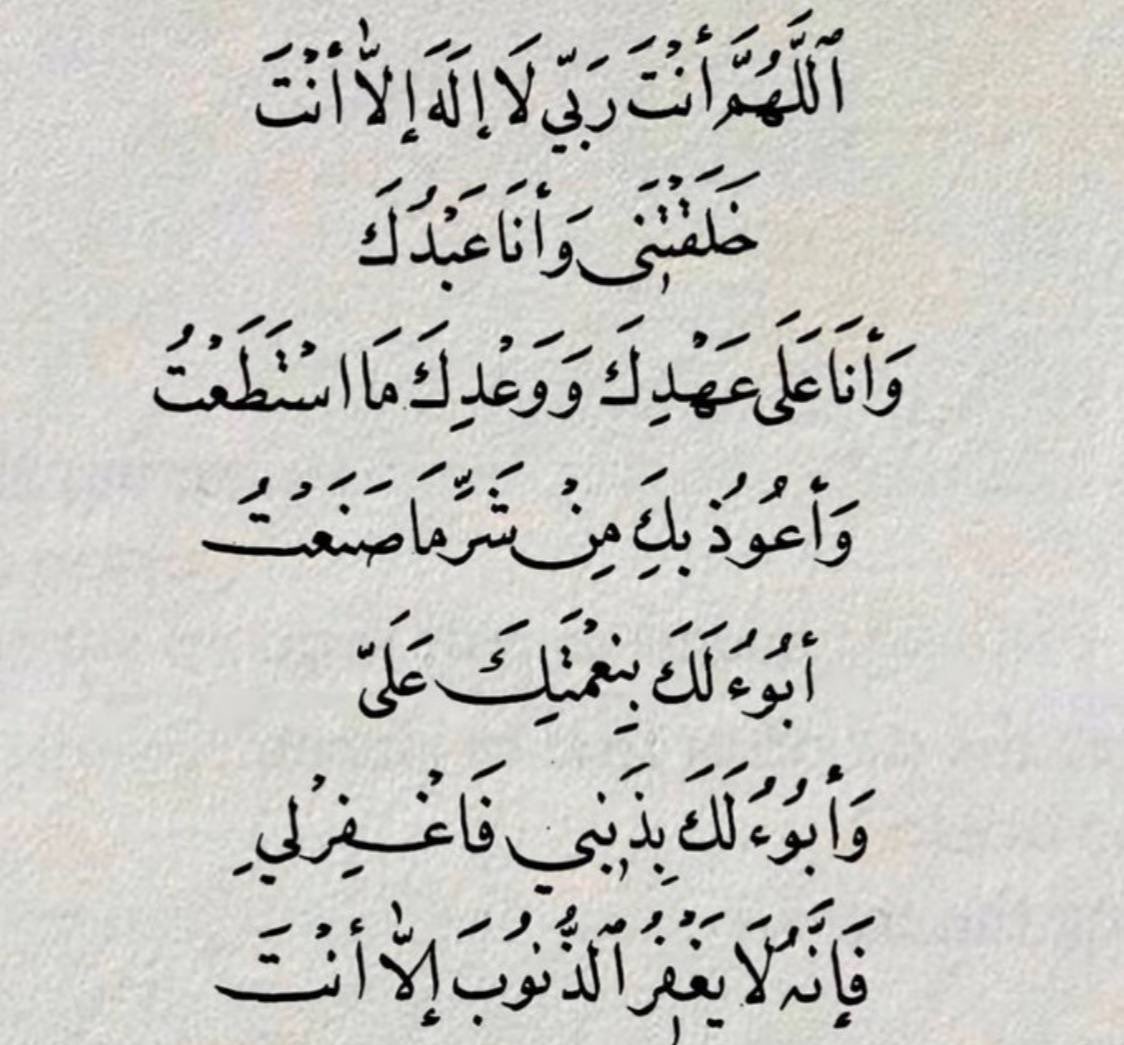 ٱللَّهُمَّ أَنْتَ رَبِّي لَا إِلَهَ إِلَّا أَنْتَ
خَلَقْتَنِي وَأَنَا عَبْدُكَ
وَأَنَا عَلَى عَهْدِكَ وَوَعْدِكَ مَا اسْتَطَعْتُ
وَأَعُوذُ بِكَ مِنْ شَرِّ مَا صَنَعْتُ
أَبُوءُ لَكَ بِنِعْمَتِكَ عَلَيَّ
وَأَبُوءُ لَكَ بِذَنْبِي فَاغْفِرْ لِي
فَإِنَّهُ لَا يَغْفِرُ ٱلذُّنُوبَ إِلَّا أَنْتَ